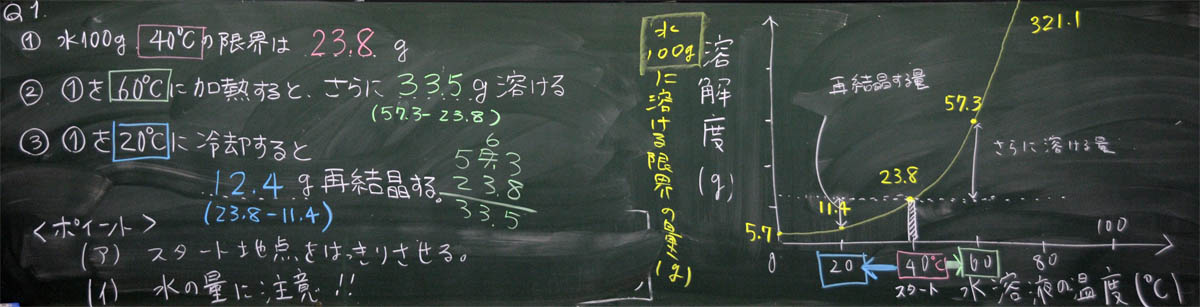 Q1.
① 水100g 40℃の限界は 23.8 g
② ①を60℃に加熱すると、さらに33.5g溶ける
(57.3-23.8)
③ ①を20℃に冷却すると
12.4g再結晶する。
(23.8-11.4)
6
57.3
23.8
33.5
<ポイント>
(ア) スタート地点をはっきりさせる。
(イ) 水の量に注意!!
水100gに溶ける限界の量(g)
溶解度(g)
再結晶する量
321.1
57.3
さらに溶ける量
23.8
11.4
5.7
0 20 40℃ 60 80 100
スタート
水溶液の温度(℃)